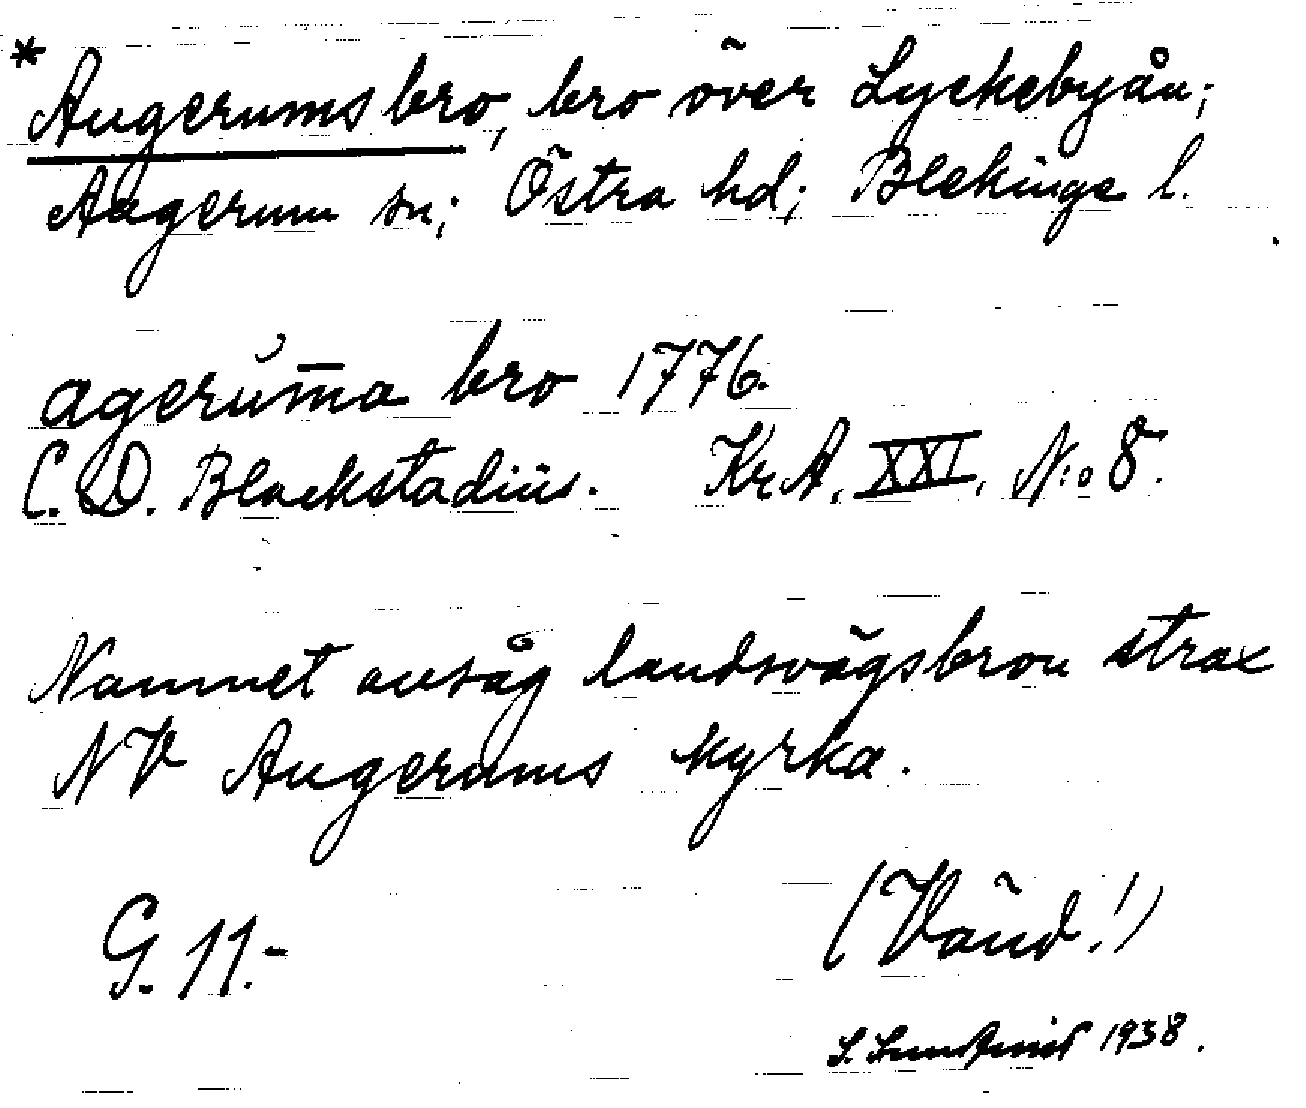 * Augerumsbro, bro över Lyckebyån;
Augerum sn; Östra hd; Blekinge l.
agerum̅a bro 1776.
C. D. Blackstadius. Kr. A. XXI, N:o 8.
Namnet avsåg landsvägsbron strax
NV Augerums kyrka.
G. 11.-
(Vänd!)
S. 1938.